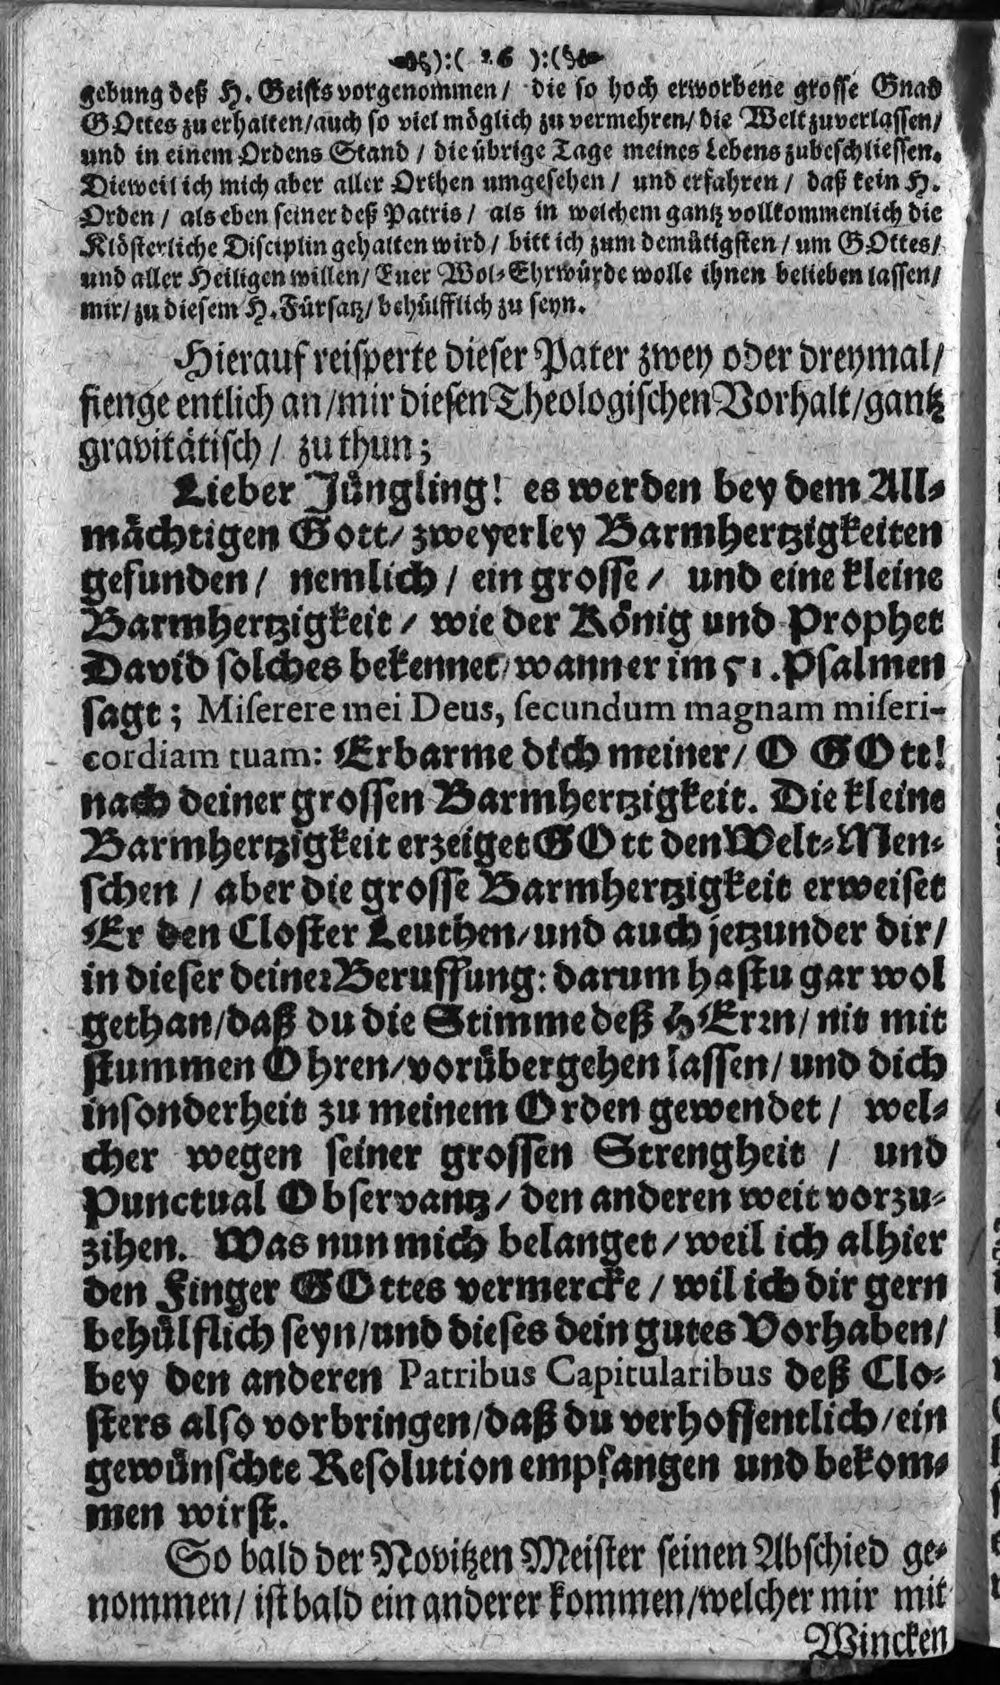 ):( 26 ):(
gebung deß H. Geists vorgenommen / die so hoch erworbene grosse Gnad
GOttes zu erhalten / auch so viel möglich zu vermehren / die Welt zuverlassen /
und in einem Ordens Stand / die übrige Tage meines Lebens zubeschliessen.
Dieweil ich mich aber aller Orthen umgesehen / und erfahren / daß kein H.
Orden / als eben seiner deß Patris / als in welchem gantz vollkommenlich die
Klösterliche Disciplin gehalten wird / bitt ich zum demütigsten / um GOttes /
und aller Heiligen willen / Euer Wol-Ehrwürde wolle ihnen belieben lassen /
mir / zu diesem H. Fürsatz / behülfflich zu seyn.
Hierauf reisperte dieser Pater zwey oder dreymal /
fienge entlich an / mir diesen Theologischen Vorhalt / gantz
gravitätisch / zu thun;
Lieber Jüngling! es werden bey dem All-
mächtigen Gott / zweyerley Barmhertzigkeiten
gefunden / nemlich / ein grosse / und eine kleine
Barmhertzigkeit / wie der König und Prophet
David solches bekennet / wann er im 51. Psalmen
sagt; Miserere mei Deus, secundum magnam miseri-
cordiam tuam: Erbarme dich meiner / O GOtt!
nach deiner grossen Barmhertzigkeit. Die kleine
Barmhertzigkeit erzeiget GOtt den Welt-Men-
schen / aber die grosse Barmhertzigkeit erweiset
Er den Closter Leuthen / und auch jetzunder dir /
in dieser deiner Beruffung: darum hastu gar wol
gethan / daß du die Stimme deß HErrn / nit mit
stummen Ohren / vorübergehen lassen / und dich
insonderheit zu meinem Orden gewendet / wel-
cher wegen seiner grossen Strengheit / und
Punctual Observantz / den anderen weit vorzu-
zihen. Was nun mich belanget / weil ich alhier
den Finger GOttes vermercke / wil ich dir gern
behülflich seyn / und dieses dein gutes Vorhaben /
bey den anderen Patribus Capitularibus deß Clo-
sters also vorbringen / daß du verhoffentlich / ein
gewünschte Resolution empfangen und bekom-
men wirst.
So bald der Novitzen Meister seinen Abschied ge-
nommen / ist bald ein anderer kommen / welcher mir mit
Wincken